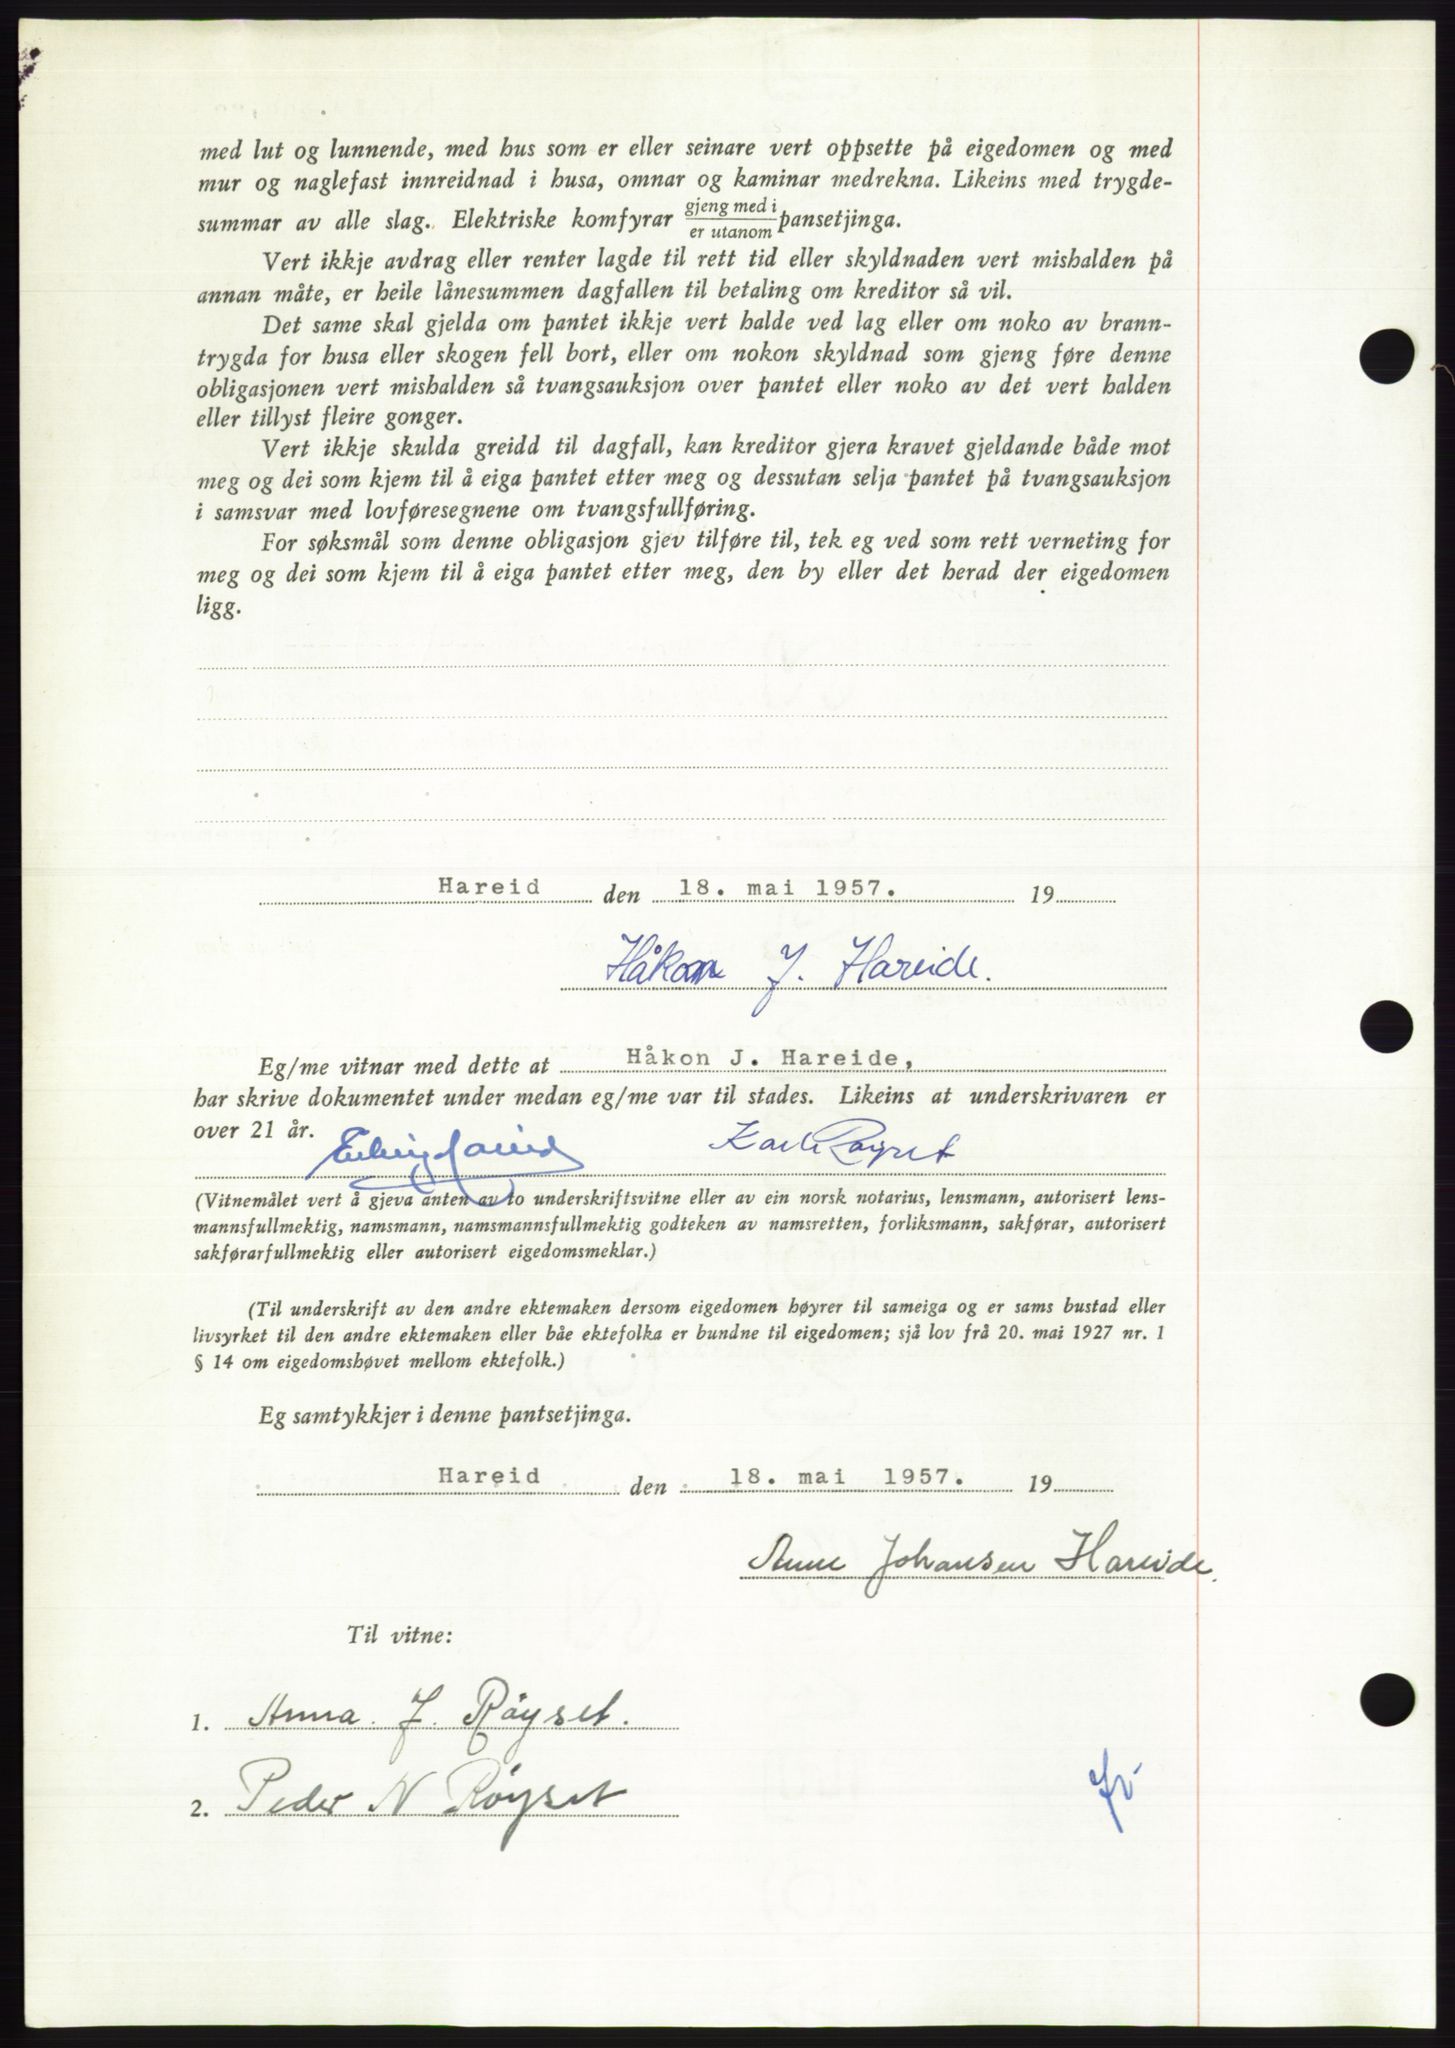 med lut og lunnende, med hus som er eller seinare vert oppsette på eigedomen og med
mur og naglefast innreidnad i husa, omnar og kaminar medrekna. Likeins med trygde-
summar av alle slag. Elektriske komfyrar gjeng med i / er utanom pansetjinga.
Vert ikkje avdrag eller renter lagde til rett tid eller skyldnaden vert mishalden på
annan måte, er heile lånesummen dagfallen til betaling om kreditor så vil.
Det same skal gjelda om pantet ikkje vert halde ved lag eller om noko av brann-
trygda for husa eller skogen fell bort, eller om nokon skyldnad som gjeng føre denne
obligasjonen vert mishalden så tvangsauksjon over pantet eller noko av det vert halden
eller tillyst fleire gonger.
Vert ikkje skulda greidd til dagfall, kan kreditor gjera kravet gjeldande både mot
meg og dei som kjem til å eiga pantet etter meg og dessutan selja pantet på tvangsauksjon
i samsvar med lovføresegnene om tvangsfullføring.
For søksmål som denne obligasjon gjev tilføre til, tek eg ved som rett verneting for
meg og dei som kjem til å eiga pantet etter meg, den by eller det herad der eigedomen
ligg.
Hareid den 18. mai 1957. 19
Håkon J. Hareide.
Eg/me vitnar med dette at Håkon J. Hareide,
har skrive dokumentet under medan eg/me var til stades. Likeins at underskrivaren er
over 21 år.
Karl Røyset
(Vitnemålet vert å gjeva anten av to underskriftsvitne eller av ein norsk notarius, lensmann, autorisert lens-
mannsfullmektig, namsmann, namsmannsfullmektig godteken av namsretten, forliksmann, sakførar, autorisert
sakførarfullmektig eller autorisert eigedomsmeklar.)
(Til underskrift av den andre ektemaken dersom eigedomen høyrer til sameiga og er sams bustad eller
livsyrket til den andre ektemaken eller båe ektefolka er bundne til eigedomen; sjå lov frå 20. mai 1927 nr. 1
§ 14 om eigedomshøvet mellom ektefolk.)
Eg samtykkjer i denne pantsetjinga.
Hareid den 18. mai 1957. 19
Anne Johansen Hareide.
Til vitne:
1. Anna J. Röyset.
2. Peder N Röyset